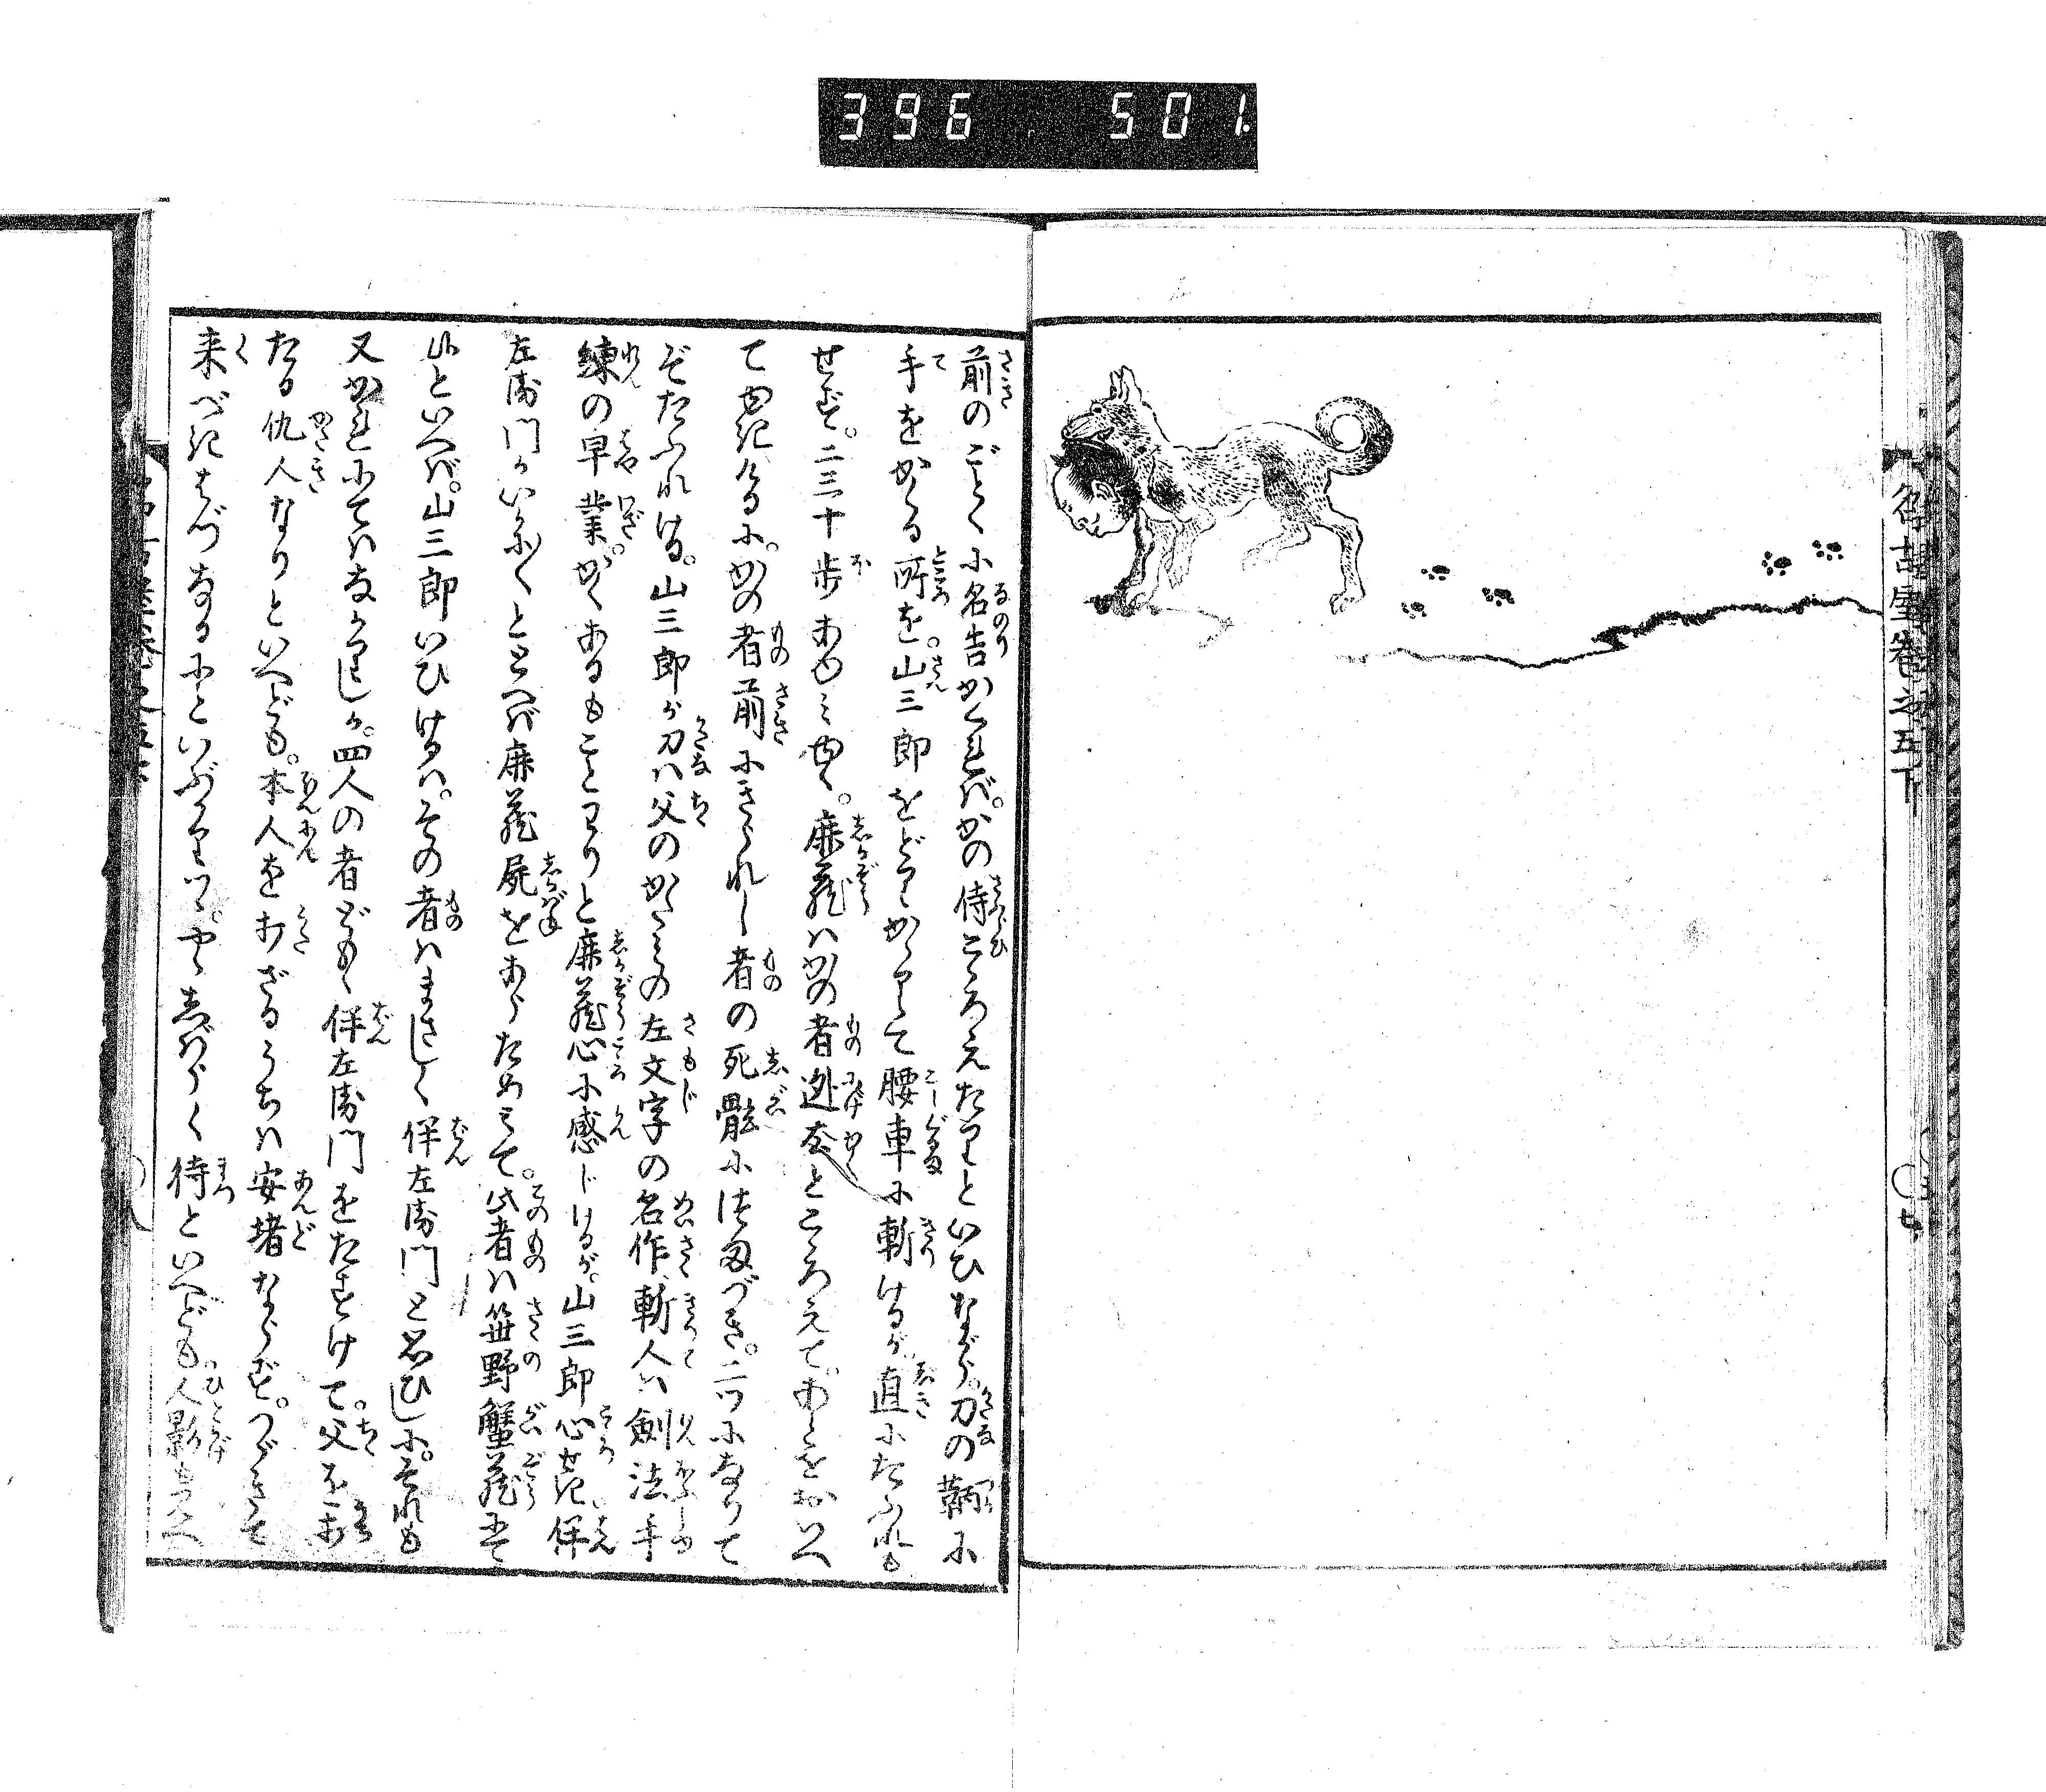 396 501
名古屋巻之五下
七
前のごとく小名告かくれバ。かの侍こゝろえたりといひながら。刀の鞆に
手をかくる所を。山三郎をどりかゝりて腰車に斬けるが。直にたふれも
せず。二三十歩あゆミゆく。鹿蔵ハかの者迯去とこゝろえて。あとをおいへ
てゆきけるに。かの者前にきられし者の死骸につまづき。二ツになりて
ぞたふれける。山三郎が刀ハ父のかたミの左文字の名作。斬人ハ剣法手
練の早業。かくあるもことわりと鹿蔵心に感じけるが。山三郎心せき。伴
左衛門かいかに〳〵ととへバ鹿蔵屍をあらためミて。此者ハ笹野蟹蔵にて
候といへバ。山三郎いひけるハ。その者ハまさしく伴左衛門と思ひしに。それも
又かれにてハなかりしか。四人の者どもゝ伴左衛門をたすけて。父をあ
たる仇人なりといへども。本人をあざるうちハ安堵ならず。つゞきて
来べきはづなるにといぶかりつゝ。やゝしばらく待といへども。人影もみへ